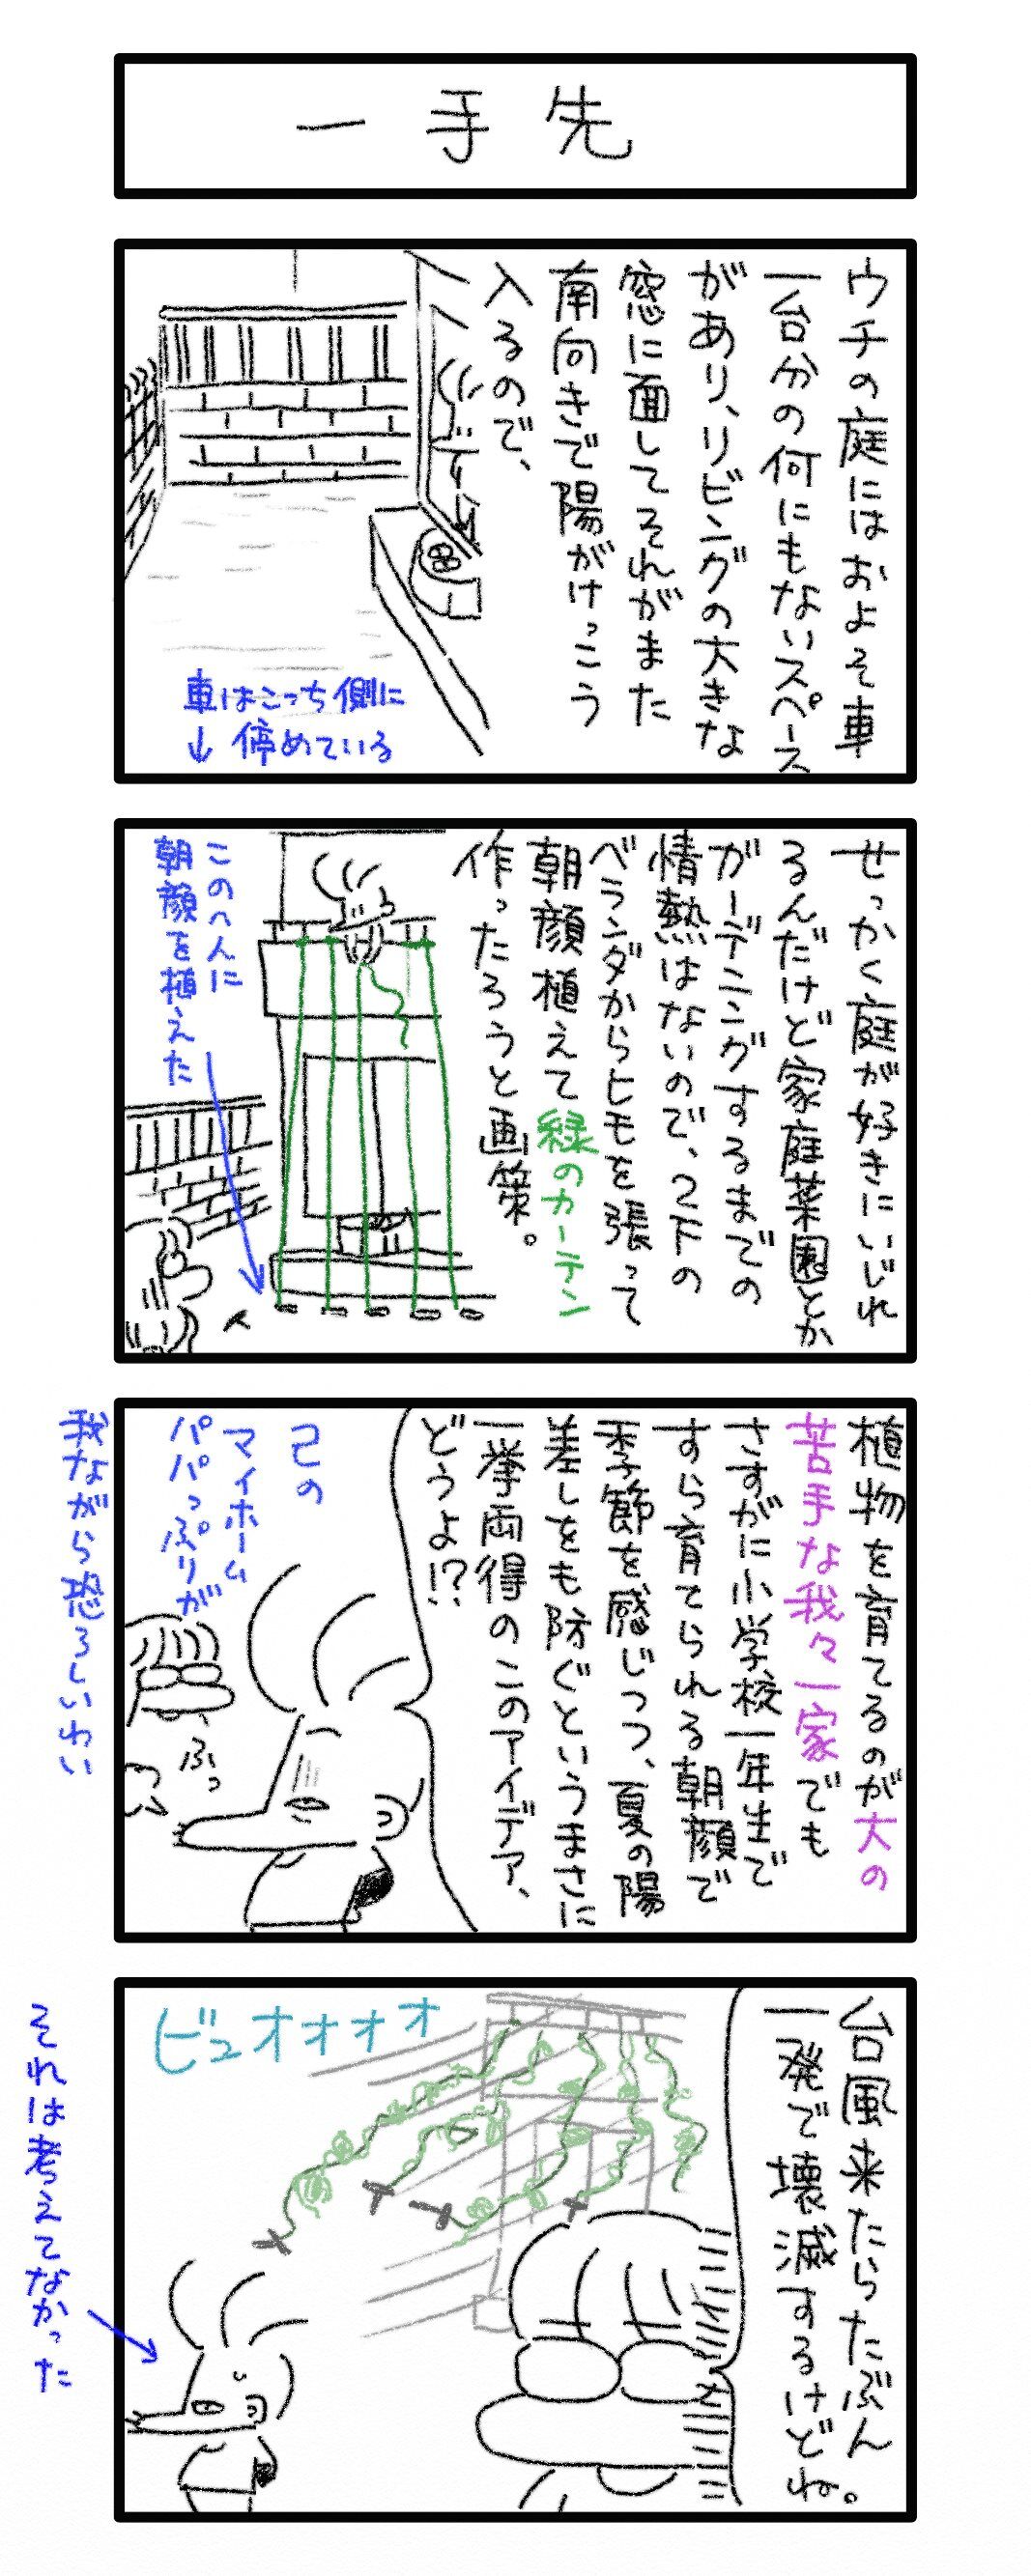 一手先
ウチの庭にはおよそ車
一台分の何にもないスペース
があり、リビングの大きな
窓に面してそれがまた
南向きで陽がけっこう
入るので、
車はこっち側に
↓停めている
せっかく庭が好きにいじれ
るんだけど家庭菜園とか
ガーデニングするまでの
情熱はないので、2下の
ベランダからヒモを張って
朝顔植えて緑のカーテン
作ったろうと画策。
このへんに
朝顔を植えた
植物を育てるのが大の
苦手な我々一家でも
さすがに小学校一年生で
すら育てられる朝顔で
季節を感じつつ、夏の陽
差しをも防ぐというまさに
一挙両得のこのアイデア、
どうよ!?
己の
マイホーム
パパっぷりが
我ながら恐ろしいわい
ふっ
台風来たらたぶん
一発で壊滅するけどね。
ビュオオオオ
それは考えてなかった